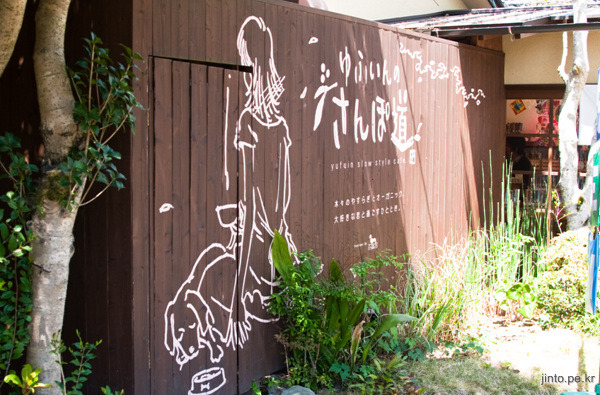 ゆふいんの
さんぽ道
yufuin slow style cafe
木々のやすらぎとオーガニック。
大好きな君と過ごすひととき。
jinto.pe.kr